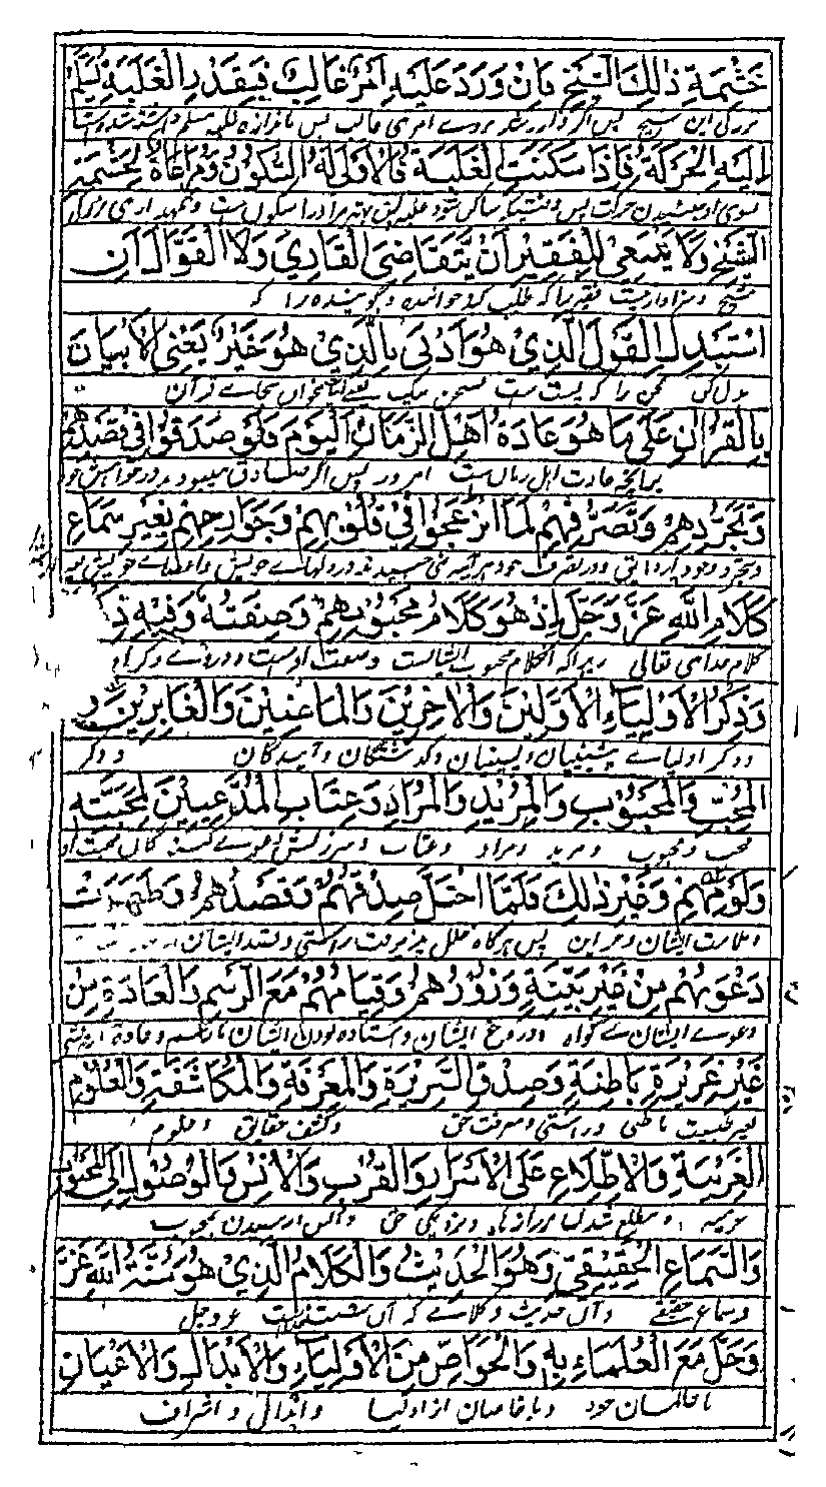 حَشْمَةِ ذٰلِكَ الشَّيْخِ فَاِنْ وَرَدَ عَلَيْهِ اَمْرٌ غَالِبٌ فَبِقَدْرِ الْغَلَبَةِ يُسَلَّمُ
بزرگی این شیخ پس اگر وارد شود بروے امری غالب پس باندازه غلبه مسلم داشته
اِلَيْهِ الْحَرَكَةُ فَاِذَا سَكَنَتِ الْغَلَبَةُ فَالْاَوْلٰى لَهُ السُّكُوْنُ وَمُرَاعَاةُ لِحَشْمَةِ
سوی او جنبیدن حرکت پس وقتیکه ساکن شود غلبه پس بهتر مر او را سکون ست و نگهداری بزرگی
الشَّيْخِ وَلَا يَنْبَغِيْ لِلْفَقِيْرِ اَنْ يَّتَقَاضَى الْقَارِيَ وَلَا الْقَوَّالَ اَنْ
شیخ و سزاوار نیست فقیر را که طلب کند خواننده و گوینده را که
اسْتَبْدِلِ الْقَوْلَ الَّذِيْ هُوَ اَدْنٰى بِالَّذِيْ هُوَ خَيْرٌ يَعْنِي الْاَبْيَاتَ
بدل کن سخن را که پست ست بسخن نیک یعنے ابیات خوان بجاے قرآن
بِالْقُرْاٰنِ عَلٰى مَا هُوَ عَادَةُ اَهْلِ الزَّمَانِ الْيَوْمَ وَلَوْ صَدَقُوْا فِيْ قَصْدِهِمْ
برانچه عادت اهل زمان ست امروز پس اگر صادق میبودند در خواهش خود
وَتَجَرُّدِهِمْ وَتَصَرُّفِهِمْ لَمَا انْزَعَجُوْا فِيْ قُلُوْبِهِمْ وَجَوَارِحِهِمْ بِغَيْرِ سَمَاعِ
كَلَامِ اللّٰهِ عَزَّ وَجَلَّ اِذْ هُوَ كَلَامُ مَحْبُوْبِهِمْ وَصِفَتُهُ وَفِيْهِ
کلام خدای تعالی زیرا که آن کلام محبوب ایشان ست و صفت اوست و دروے ذکر
وَذِكْرُ الْاَوْلِيَاءِ الْاَوَّلِيْنَ وَالْاٰخِرِيْنَ وَالْمَاضِيْنَ وَالْغَابِرِيْنَ وَ
و ذکر اولیاے پیشینیان و پسینیان و گذشتگان و آیندگان و ذکر
الْمُحِبِّ وَالْمَحْبُوْبِ وَالْمُرِيْدِ وَالْمُرَادِ وَعِتَابِ الْمُدَّعِيْنَ لِمَحَبَّتِهِ
محب و محبوب و مرید و مراد و عتاب و سرزنش دعوے کنندگان محبت او
وَلَوْمِهِمْ وَغَيْرِ ذٰلِكَ فَلَمَّا اخْتَلَّ صِدْقُهُمْ وَقَصْدُهُمْ وَظَهَرَتْ
و ملامت ایشان و غیر این پس هرگاه خلل پذیرفت راستی و قصد ایشان
دَعْوٰىهُمْ مِنْ غَيْرِ بَيِّنَةٍ وَزُوْرُهُمْ وَقِيَامُهُمْ مَعَ الرَّسْمِ وَالْعَادَةِ مِنْ
دعوے ایشان بے گواه و دروغ ایشان و استاده بودن ایشان با رسم و عادة
غَيْرِ غَرِيْزَةٍ بَاطِنَةٍ وَصِدْقِ السَّرِيْرَةِ وَالْمَعْرِفَةِ وَالْمُكَاشَفَةِ وَالْعُلُوْمِ
بغیر طبیعت باطنی و راستی و معرفت حق و کشف حقایق و علوم
الْغَرِيْبَةِ وَالْاِطِّلَاعِ عَلَى الْاَسْرَارِ وَالْقُرْبِ وَالْاُنْسِ وَالْوُصُوْلِ اِلَى الْمَحْبُوْبِ
غریبه و مطلع شدن بر رازها و نزدیکی حق و انس و رسیدن بمحبوب
وَالسَّمَاعِ الْحَقِيْقِيِّ وَهُوَ الْحَدِيْثُ وَالْكَلَامُ الَّذِيْ هُوَ سُنَّةُ اللّٰهِ عَزَّ
و سماع حقیقے و آن حدیث و کلامے که آن سنت خداست عز و جل
وَجَلَّ مَعَ الْعُلَمَاءِ بِهِ وَالْخَوَاصِّ مِنَ الْاَوْلِيَاءِ وَالْاَبْدَالِ وَالْاَعْيَانِ
با عالمان خود و با خاصان از اولیا و ابدال و اشراف